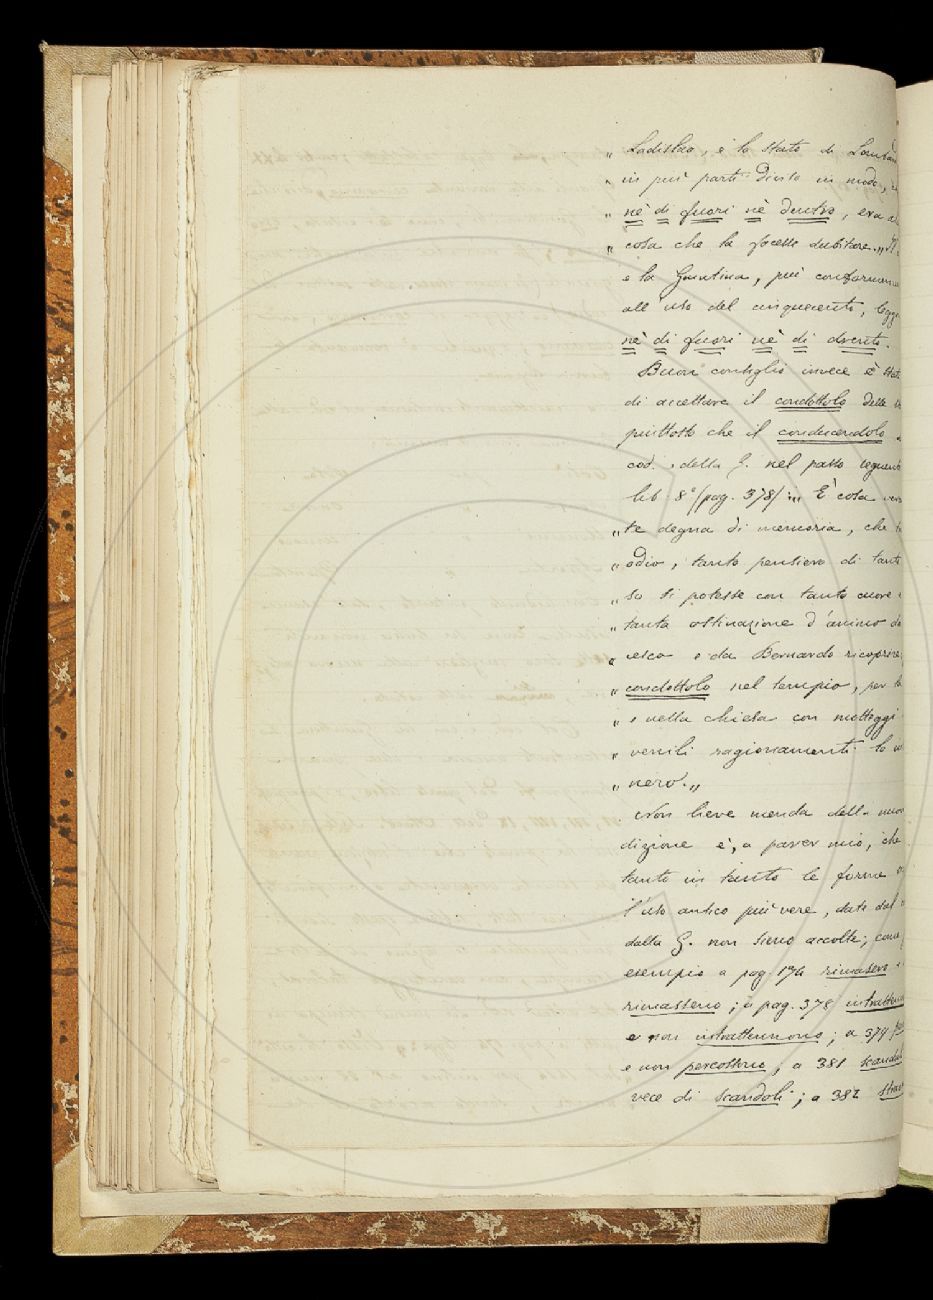 „ Ladislao, e lo Stato di
„ in più parti diviso in modo,
„ nè di fuori nè dentro, era
„ cosa che la facesse dubitare.„
e la Giuntina, più
all'uso del cinquecento,
nè di fuori nè di drento.
Buon consiglio invece è
di accettare il condottolo delle
piuttosto che il conducendolo
cod. e della G. nel passo
lib. 8° (pag. 378): „ È cosa
„ te degna di memoria, che
„ odio, tanto pensiero di
„ so si potesse con tanto cuore e
„ tanta ostinazione d'animo
„ cesco e da Bernardo ricoprire;
„ condottolo nel tempio, per
„ e nella chiesa con motteggi
„ venili ragionamenti lo
„ nero.„
Non lieve menda della
dizione è, a parer mio, che
tanto in tanto le forme
l'uso antico più vere, date dal
dalla G. non sieno accolte; come
esempio a pag. 174 rimasero e
rimasseno; a pag. 378
e non intrattennono; a 379
e non percossono; a 381
vece di scandoli; a 382